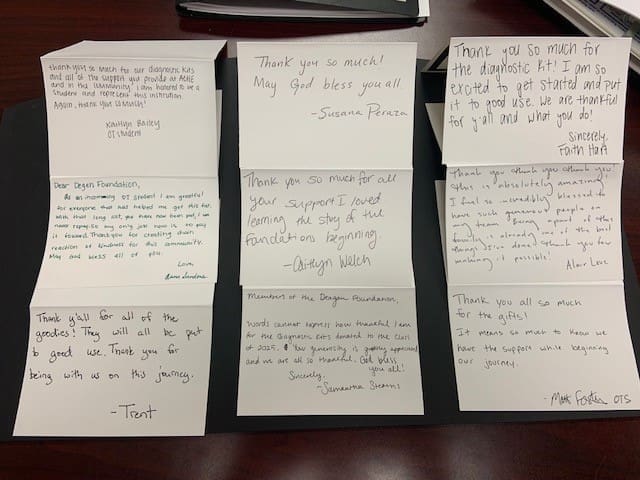 thank you so much for our diagnostic kits
and all of the support you provide at ACHE
and in the community! I am honored to be a
student and represent this institution.
Again, thank you so much!
Kaitlyn Bailey
OT student
Dear Degen Foundation,
As an incoming OT student I am grateful
for everyone that has helped me get this far.
With that long list, you have now been put, I can
never repay. So my only job now is to pay
it forward. Thank you for creating chain
reaction of kindness for this community.
May God bless all of you.
Love,
Thank y'all for all of the
goodies! They will all be put
to good use. Thank you for
being with us on this journey.
-Trent
Thank you so much!
May God bless you all
-Susana Peraza
Thank you so much for all
your support I loved
learning the story of the
foundations beginning
-Caitlyn Welch
Members of the Deagen Foundation,
Words cannot express how thankful I am
for the diagnosis kits donated to the Class
of 2025. Your generosity is greatly appreciated
and we are all so thankful. God bless
you all!
Sincerely,
-Samantha Stearns
Thank you so much for
the diagnostic kit! I am so
excited to get started and put
it to good use. We are thankful
for y'all and what you do!
Sincerely,
Faith Hart
Thank you thank you thank you!
this is absolutely amazing!
I feel so incredibly blessed to
have such generous people on
my team. Being apart of this
family is already one of the best
things I've done! thank you for
making it possible!
Thank you all so much
for the gifts!
It means so much to know we
have the support while beginning
our journey.
OTS